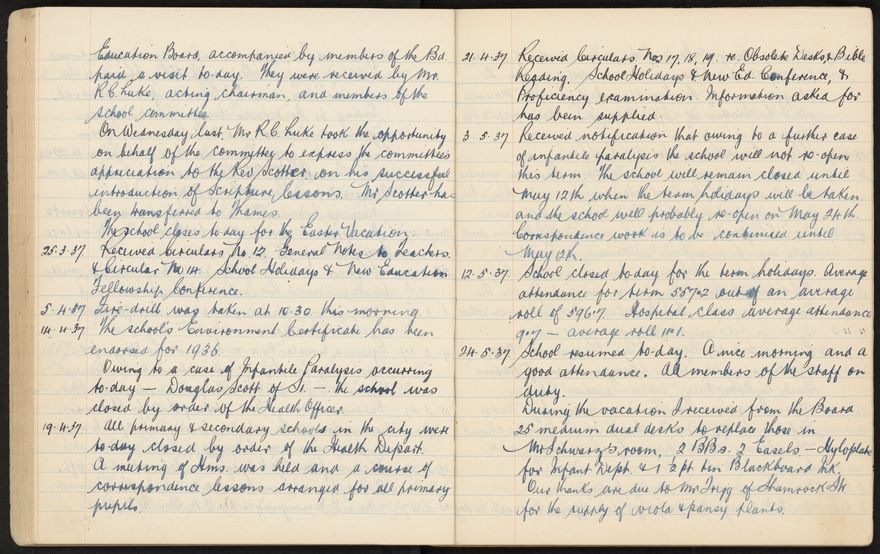 Education Board, accompanied by members of the Bd
paid a visit to-day. They were received by Mr.
R.C. Luke, acting chairman, and members of the
school committee.
On Wednesday last Mr R.C. Luke took the opportunity
on behalf of the committee to express the committee's
appreciation to the Rev Scotter on his successful
introduction of Scripture lessons. Mr Scotter has
been transferred to Thames.
The school closes to-day for the Easter Vacation.
25.3.37 Received Circulars No. 12 General Notes to Teachers
& Circular No 14 School Holidays & New Education
Fellowship Conference.
5-4-37 Fire-drill was taken at 10-30 this morning
14.4.37 The school's Environment Certificate has been
endorsed for 1936.
Owing to a case of Infantile Paralysis occurring
to-day — Douglas Scott of — the school was
closed by order of the Health Officer.
19.4.37 All primary & secondary schools in the city were
to-day closed by order of the Health Depart.
A meeting of Hms. was held and a course of
correspondence lessons arranged for all primary
pupils.
21.4.37 Received Circulars Nos 17, 18, 19. re. Obsolete Desks, & Bible
Reading, School Holidays & New Ed. Conference, &
Proficiency examination. Information asked for
has been supplied
3 5.37 Received notification that owing to a further case
of infantile paralysis the school will not re-open
this term. The school will remain closed until
May 12th when the term holidays will be taken
and the school will probably re-open on May 24th.
Correspondence work is to be continued until
May
12.5.37 School closed to-day for the term holidays. Average
attendance for term 557.2 out of an average
roll of 596.7. Hospital class average attendance
9.7 — average roll
24.5.37 School resumed to-day. A nice morning and a
good attendance. All members of the staff on
duty.
During the vacation I received from the Board
25 medium dual desks to replace those in
Mr Schwarz's room, 2 BBs. 2 Easels — Hyloplate
for Infant Dept. & 1 ½ pt tin Blackboard Ink.
Our thanks are due to Mr Trigg of Shamrock St
for the supply of viola & pansy plants.